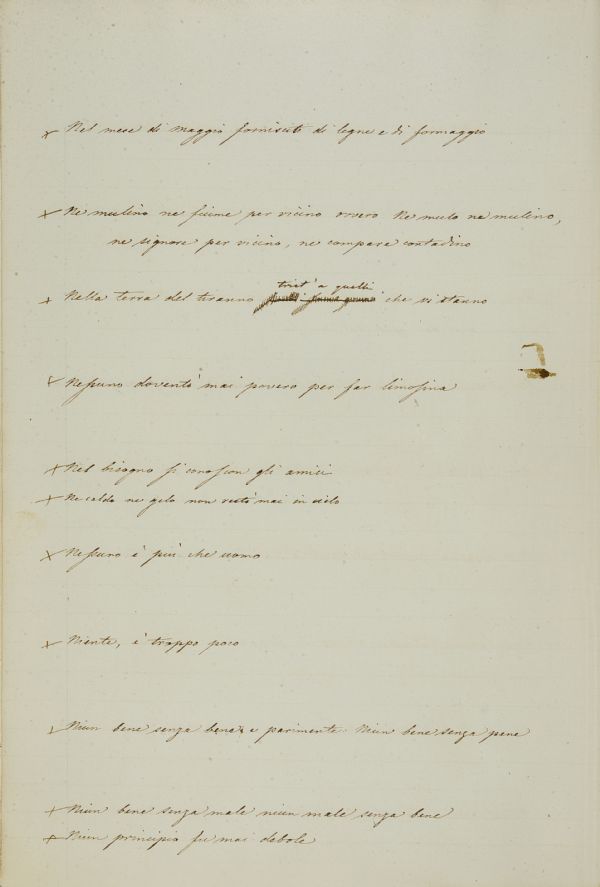 x Nel mese di Maggio forniscete di legne e di formaggio
x Ne mulino ne fiume per vicino ovvero Ne mulo ne mulino,
ne signore per vicino, ne compare contadino
x Nella terra del tiranno trist' a quelli che vi stanno
x Nessuno doventò mai povero per far limosina
x Nel bisogno si conoscon gli amici
x Ne caldo ne gelo non restò mai in cielo
x Nessuno è più che uomo
x Niente, è troppo poco
x Niun bene senza e parimente Niun bene senza pene
x Niun bene senza male niun male senza bene
x Niun principio fu mai debole